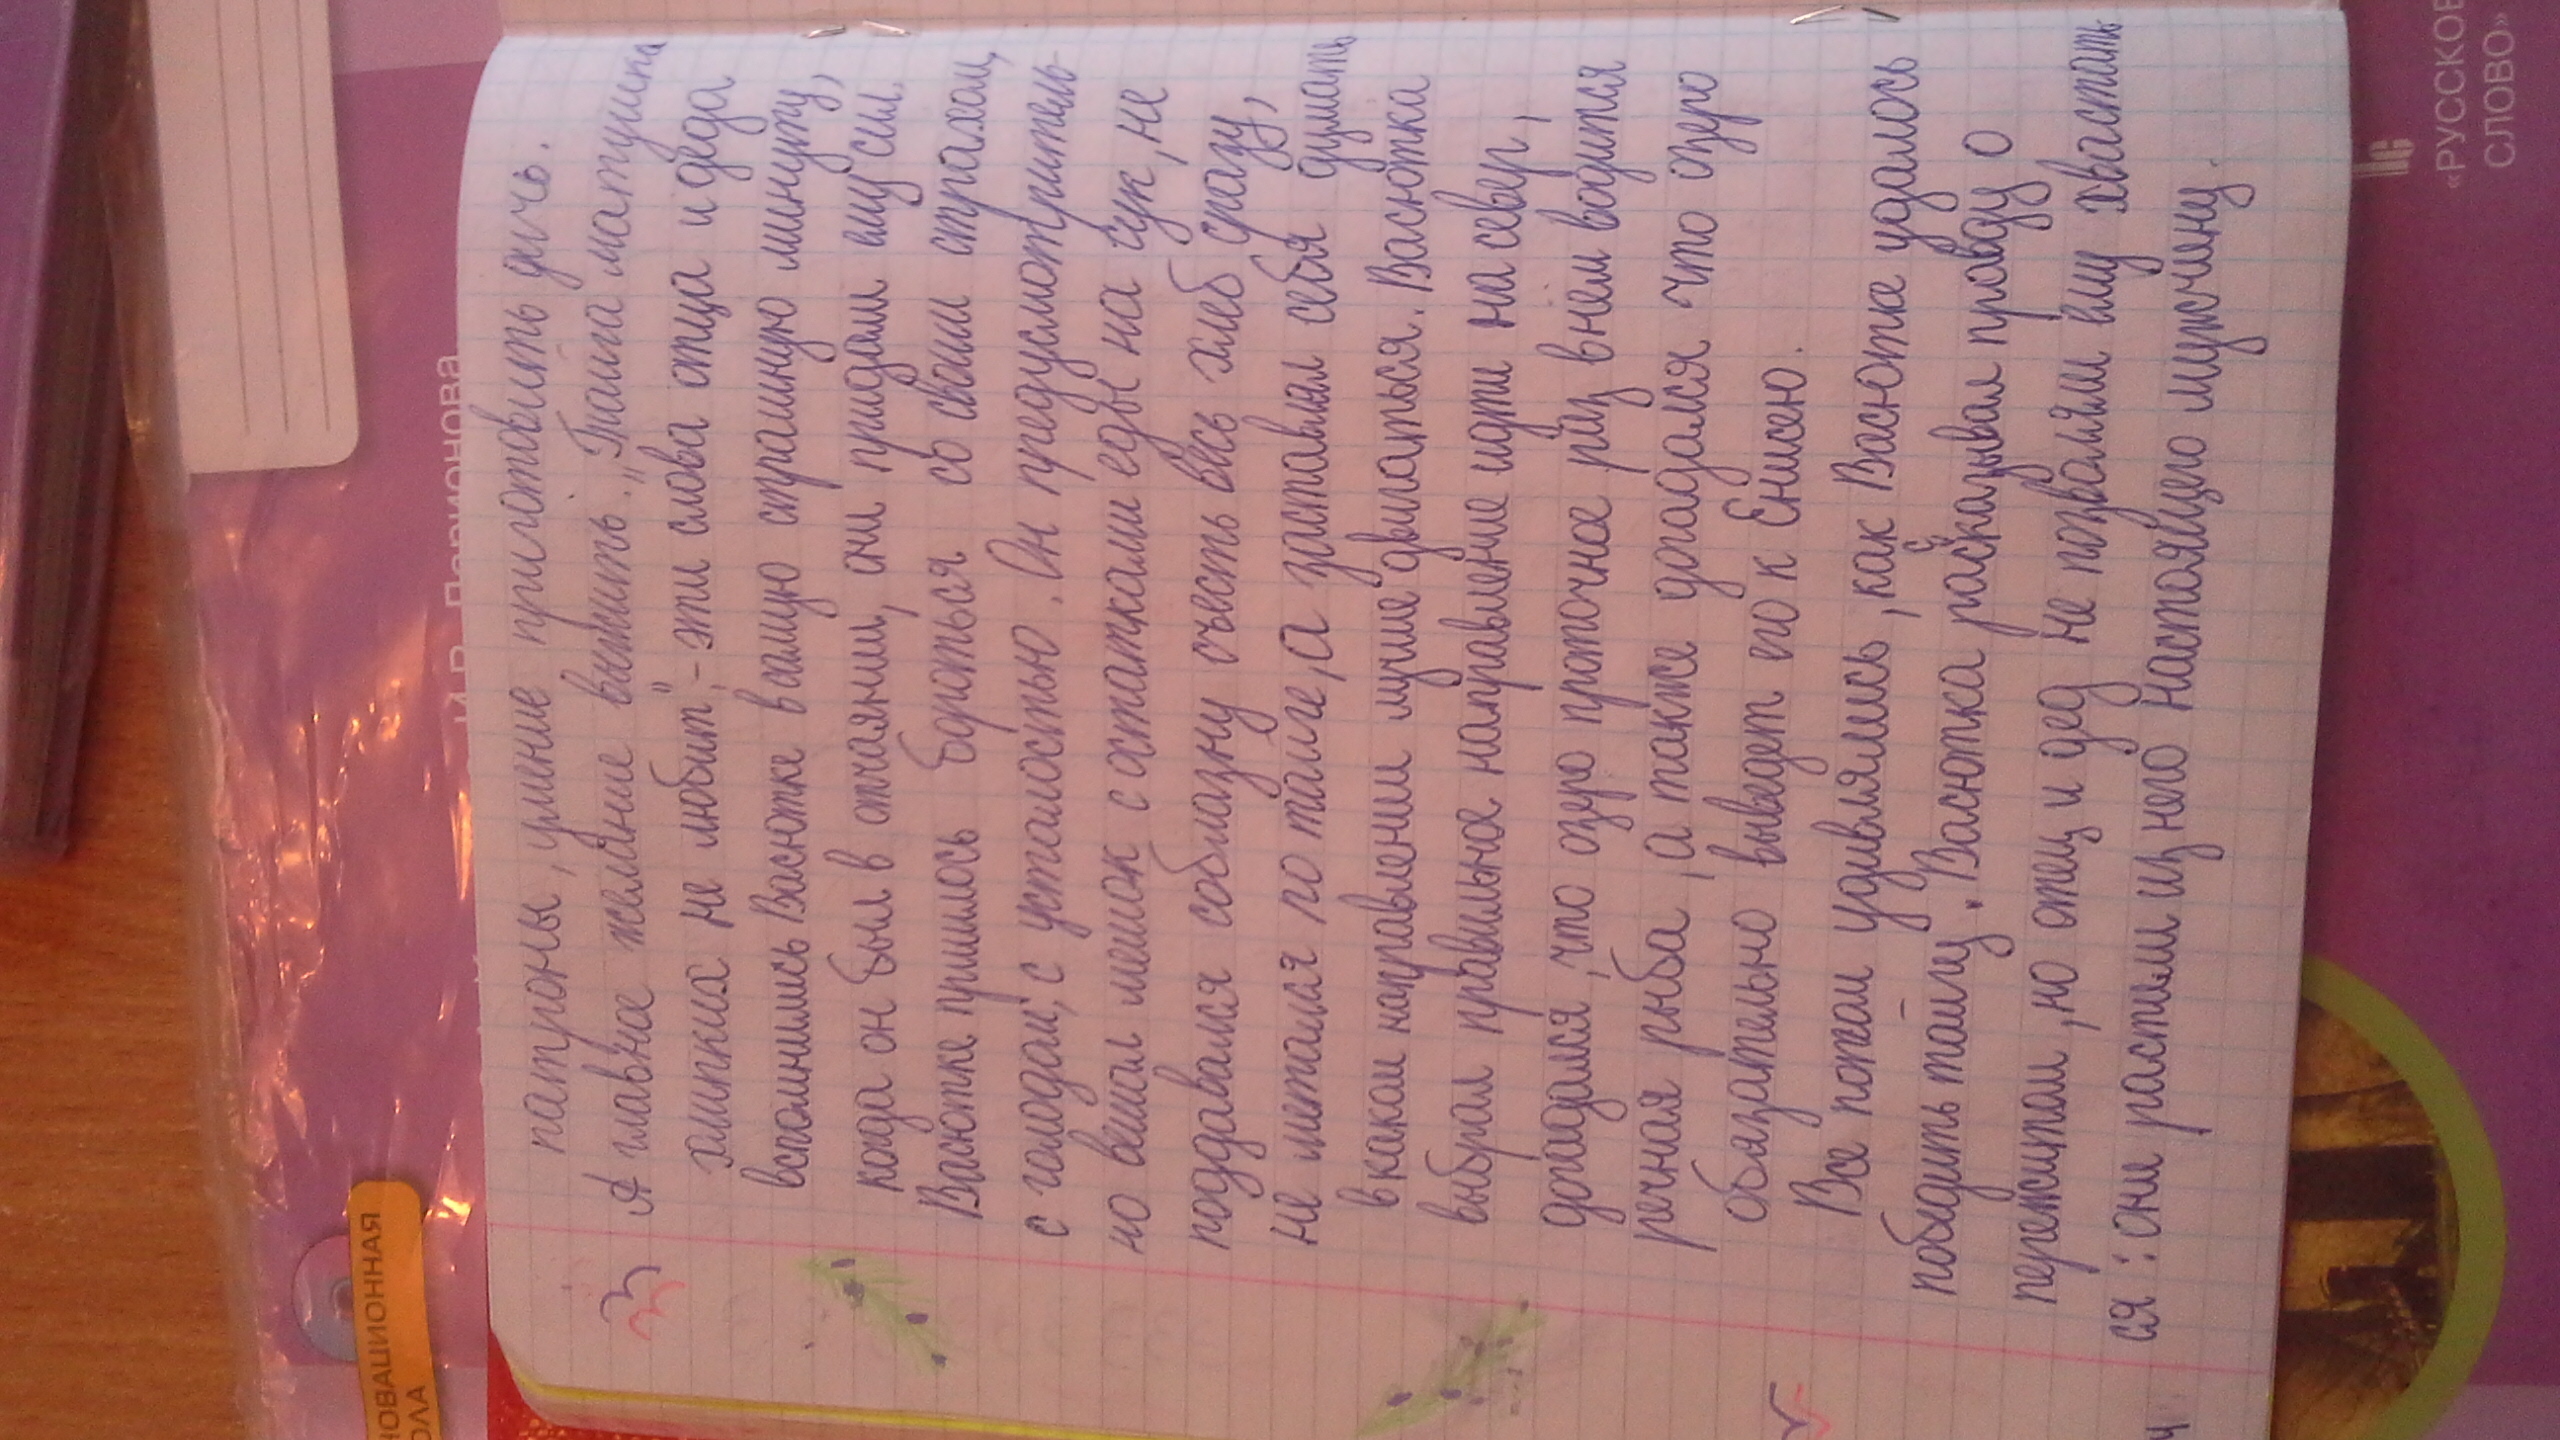 патроны, умение приготовить дичь.
А главное желание выжить. „Тайга матушка
хлипких не любит", - эти слова отца и деда
вспомнились Васютке в самую страшную минуту,
когда он был в отчаянии, они придали ему сил.
Васютке пришлось бороться со своим страхом,
с голодом, с усталостью. Он предусмотритель-
но вешал мешок с остатками еды на сук, не
поддавался соблазну съесть весь хлеб сразу,
не метался по тайге, а заставлял себя думать
в каком направлении лучше двигаться. Васютка
выбрал правильное направление идти на север,
догадался, что озеро проточное раз в нём водится
речная рыба, а также догадался что озеро
обязательно выведет его к Енисею.
Все потом удивлялись, как Васютке удалось
победить тайгу. Васютка рассказывал правду о
пережитом, но отец и дед не позваляли ему хвастать
ся: они растили из него настоящего мужчину.
НОВАЦИОННАЯ
ОЛА
И.В. Ларионова
«РУССКОЕ
СЛОВО»